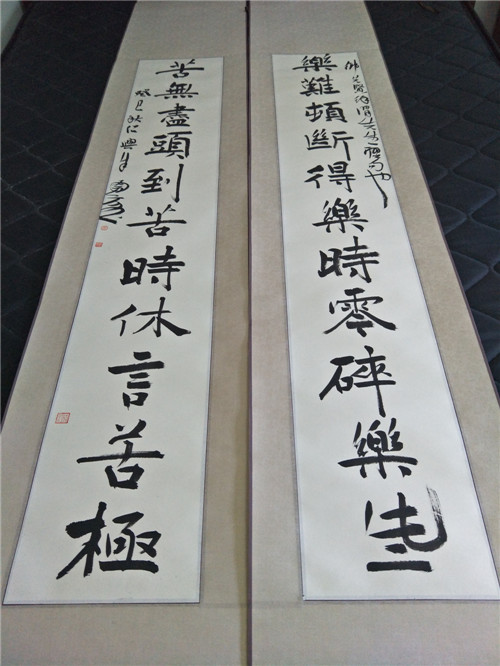 樂難頓斷得樂時零碎樂些
苦無盡頭到苦時休言苦極
癸巳秋